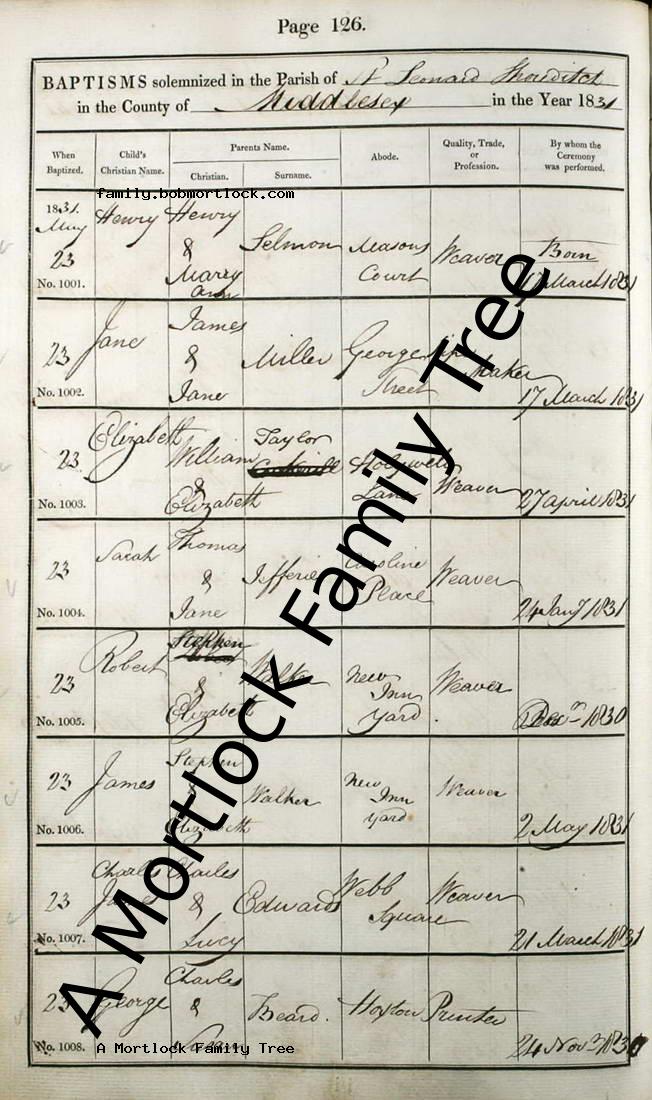 Page 126.
BAPTISMS solemnized in the Parish of St Leonard Shoreditch
in the County of Middlesex in the Year 1831
When Baptized. Child's Christian Name. Parents Name. Christian. Surname. Abode. Quality, Trade, or Profession. By whom the Ceremony was performed.
family.bobmortlock.com
1831. May 23 Henry Henry & Marey Ann Selmon Masons Court Weaver Born 17 March 1831
No. 1001.
23 Jane James & Jane Miller George Street Maker 17 March 1831
No. 1002.
23 Elizabeth William & Elizabeth Taylor Holywell Lane Weaver 27 April 1831
No. 1003.
23 Sarah Thomas & Jane Jefferies Caroline Place Weaver 24 Jany 1831
No. 1004.
23 Robert Stephen & Elizabeth Walker New Inn Yard. Weaver 1830
No. 1005.
23 James Stephen & Elizabeth Walker New Inn Yard Weaver 2 May 1831
No. 1006.
23 Charles Charles & Lucy Edwards Webb Square Weaver 21 March 1831
No. 1007.
23 George Charles & Beard. Hoxton Printer 24 Novr
No. 1008.
A Mortlock Family Tree
A Mortlock Family Tree